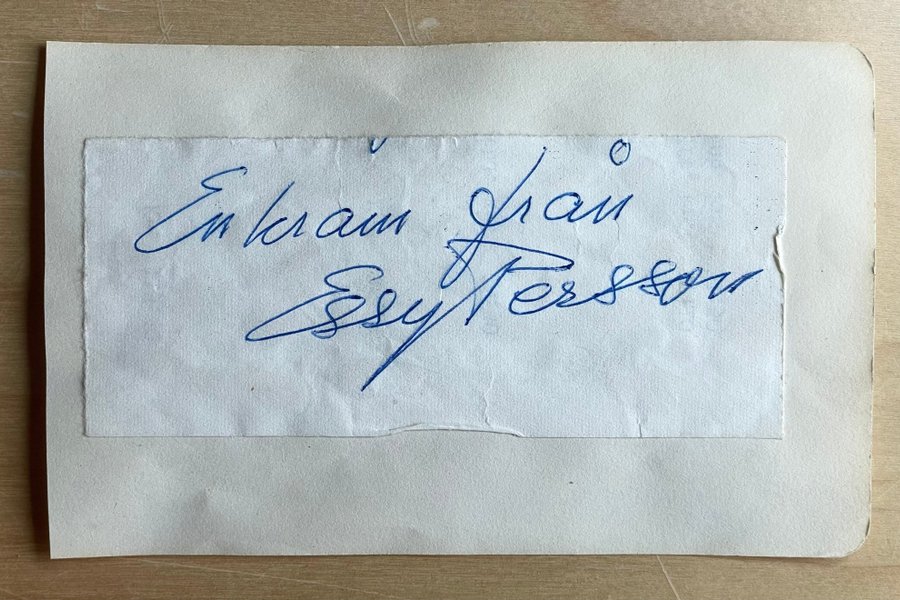 En kram från
Essy Persson